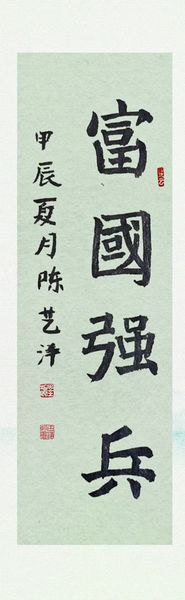 富國强兵
甲辰夏月陈艺泽